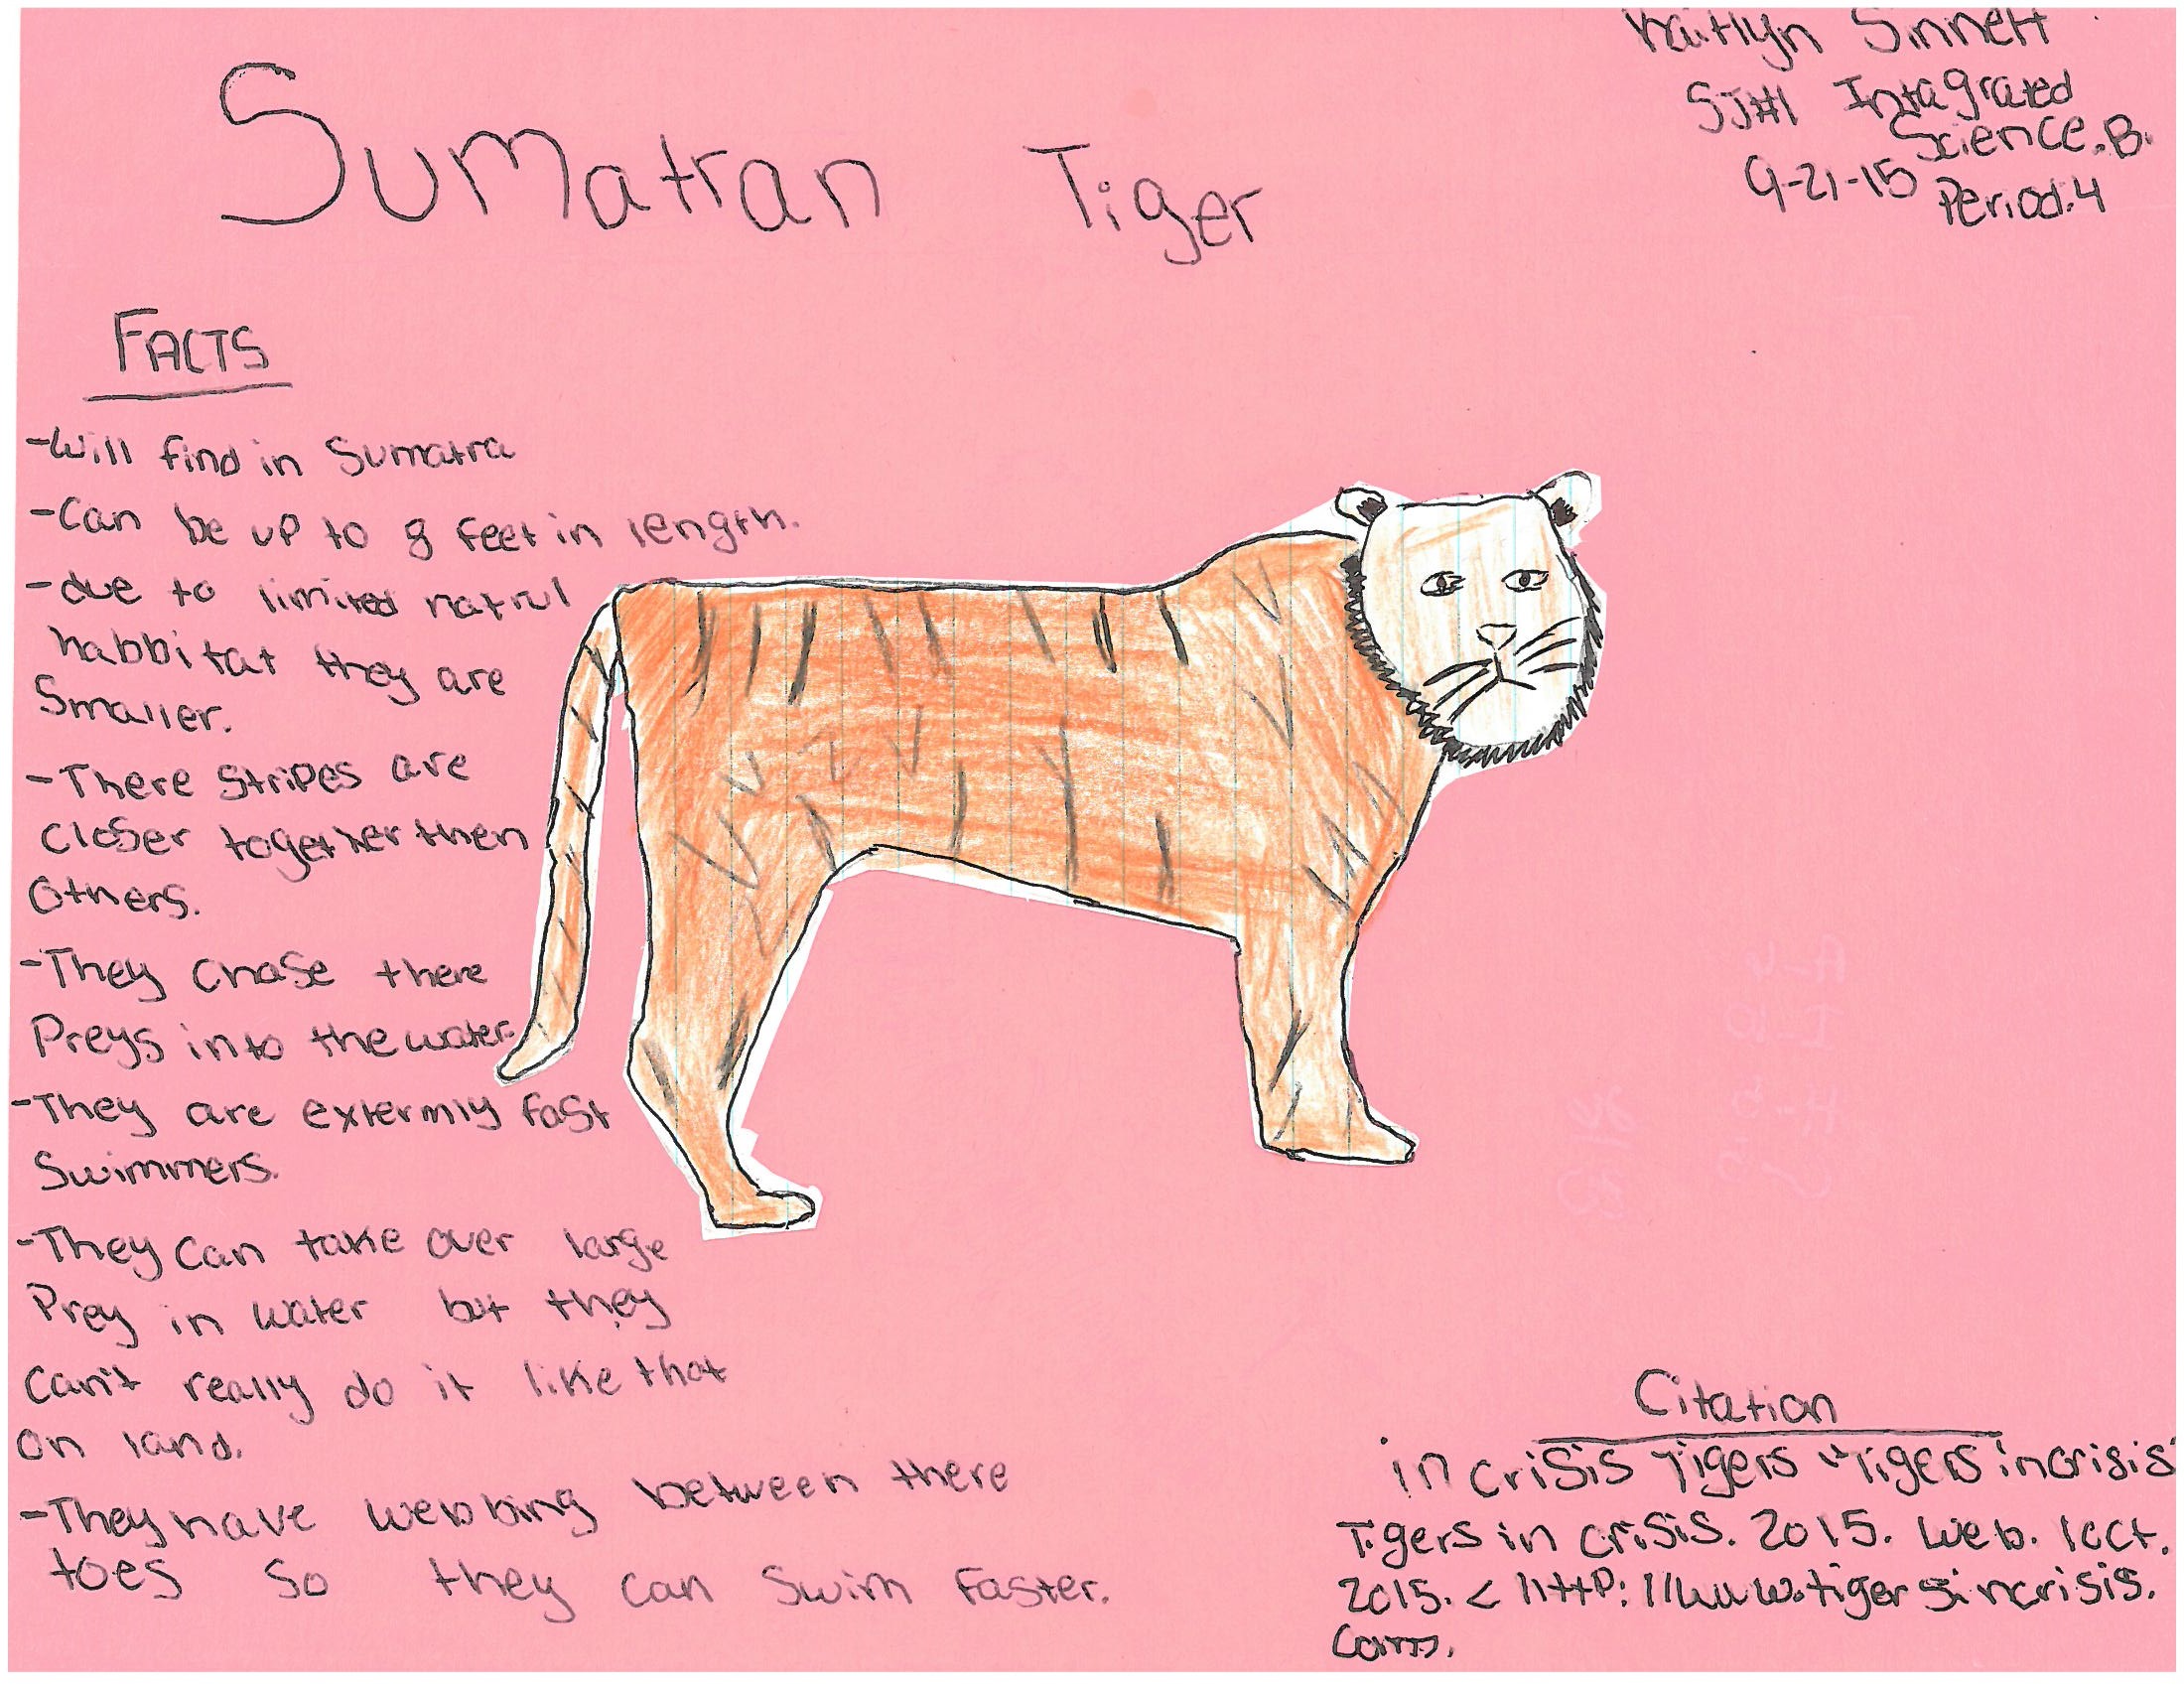 Kaitlyn Sinnett
SJ#1 Intagrated
Science.B.
9-21-15 Period.4
Sumatran Tiger
FACTS
-Will find in Sumatra
-Can be up to 8 feet in length.
-due to limited natrul
habbitat they are
Smaller.
-There Stripes are
Closer together then
Others.
-They Chase there
Preys into the water.
-They are extermly fast
Swimmers.
-They Can take over large
Prey in water but they
Can't really do it like that
on land.
-They have webbing between there
toes so they can swim faster.
Citation
in crisis Tigers "Tigers incrisis"
Tigers in crisis. 2015. Web. 1oct.
2015. < http://www.tigersincrisis.
com.